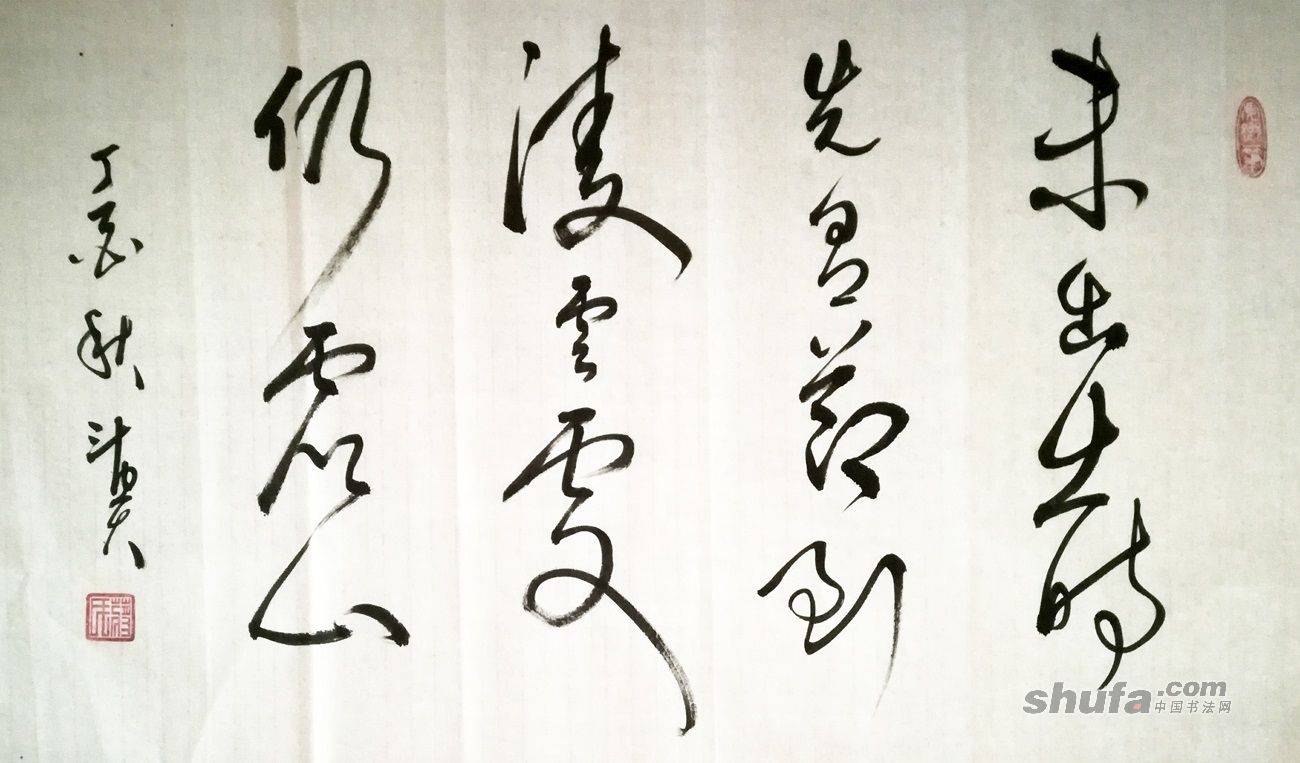 未出土時
先節到
凌雲處
仍虛心
丁酉秋
shufa.com
中国书法网